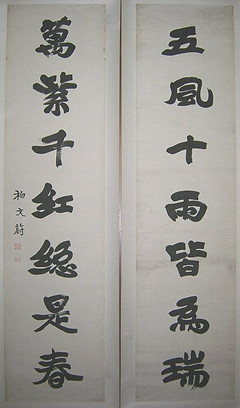 五風十雨皆為瑞
萬紫千紅總是春
柏文蔚